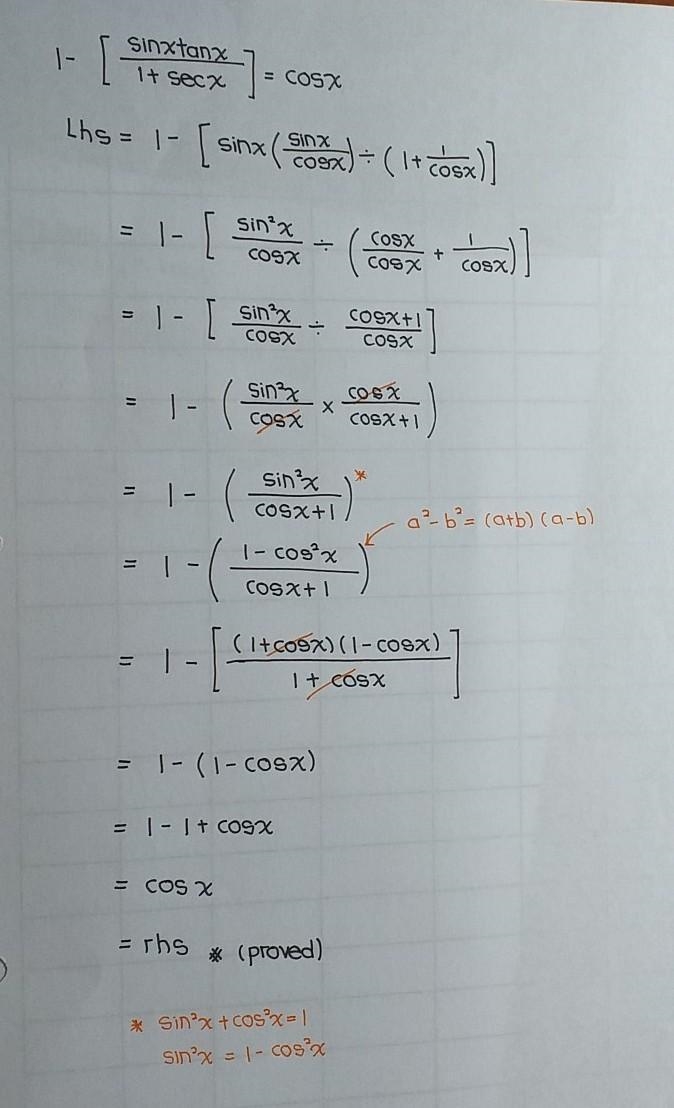 1 - [ sinxtanx / 1 + secx ] = cosx
Lhs = 1 - [ sinx ( sinx / cosx ) ÷ ( 1 + 1 / cosx ) ]
= 1 - [ sin²x / cosx ÷ ( cosx / cosx + 1 / cosx ) ]
= 1 - [ sin²x / cosx ÷ cosx+1 / cosx ]
= 1 - ( sin²x / cosx × cosx / cosx+1 )
= 1 - ( sin²x / cosx+1 ) *
a² - b² = (a+b) (a-b)
= 1 - ( 1 - cos²x / cosx+1 )
= 1 - [ (1+cosx)(1-cosx) / 1 + cosx ]
= 1 - (1 - cosx)
= 1 - 1 + cosx
= cosx
= rhs * (proved)
* sin²x + cos²x = 1
sin²x = 1 - cos²x